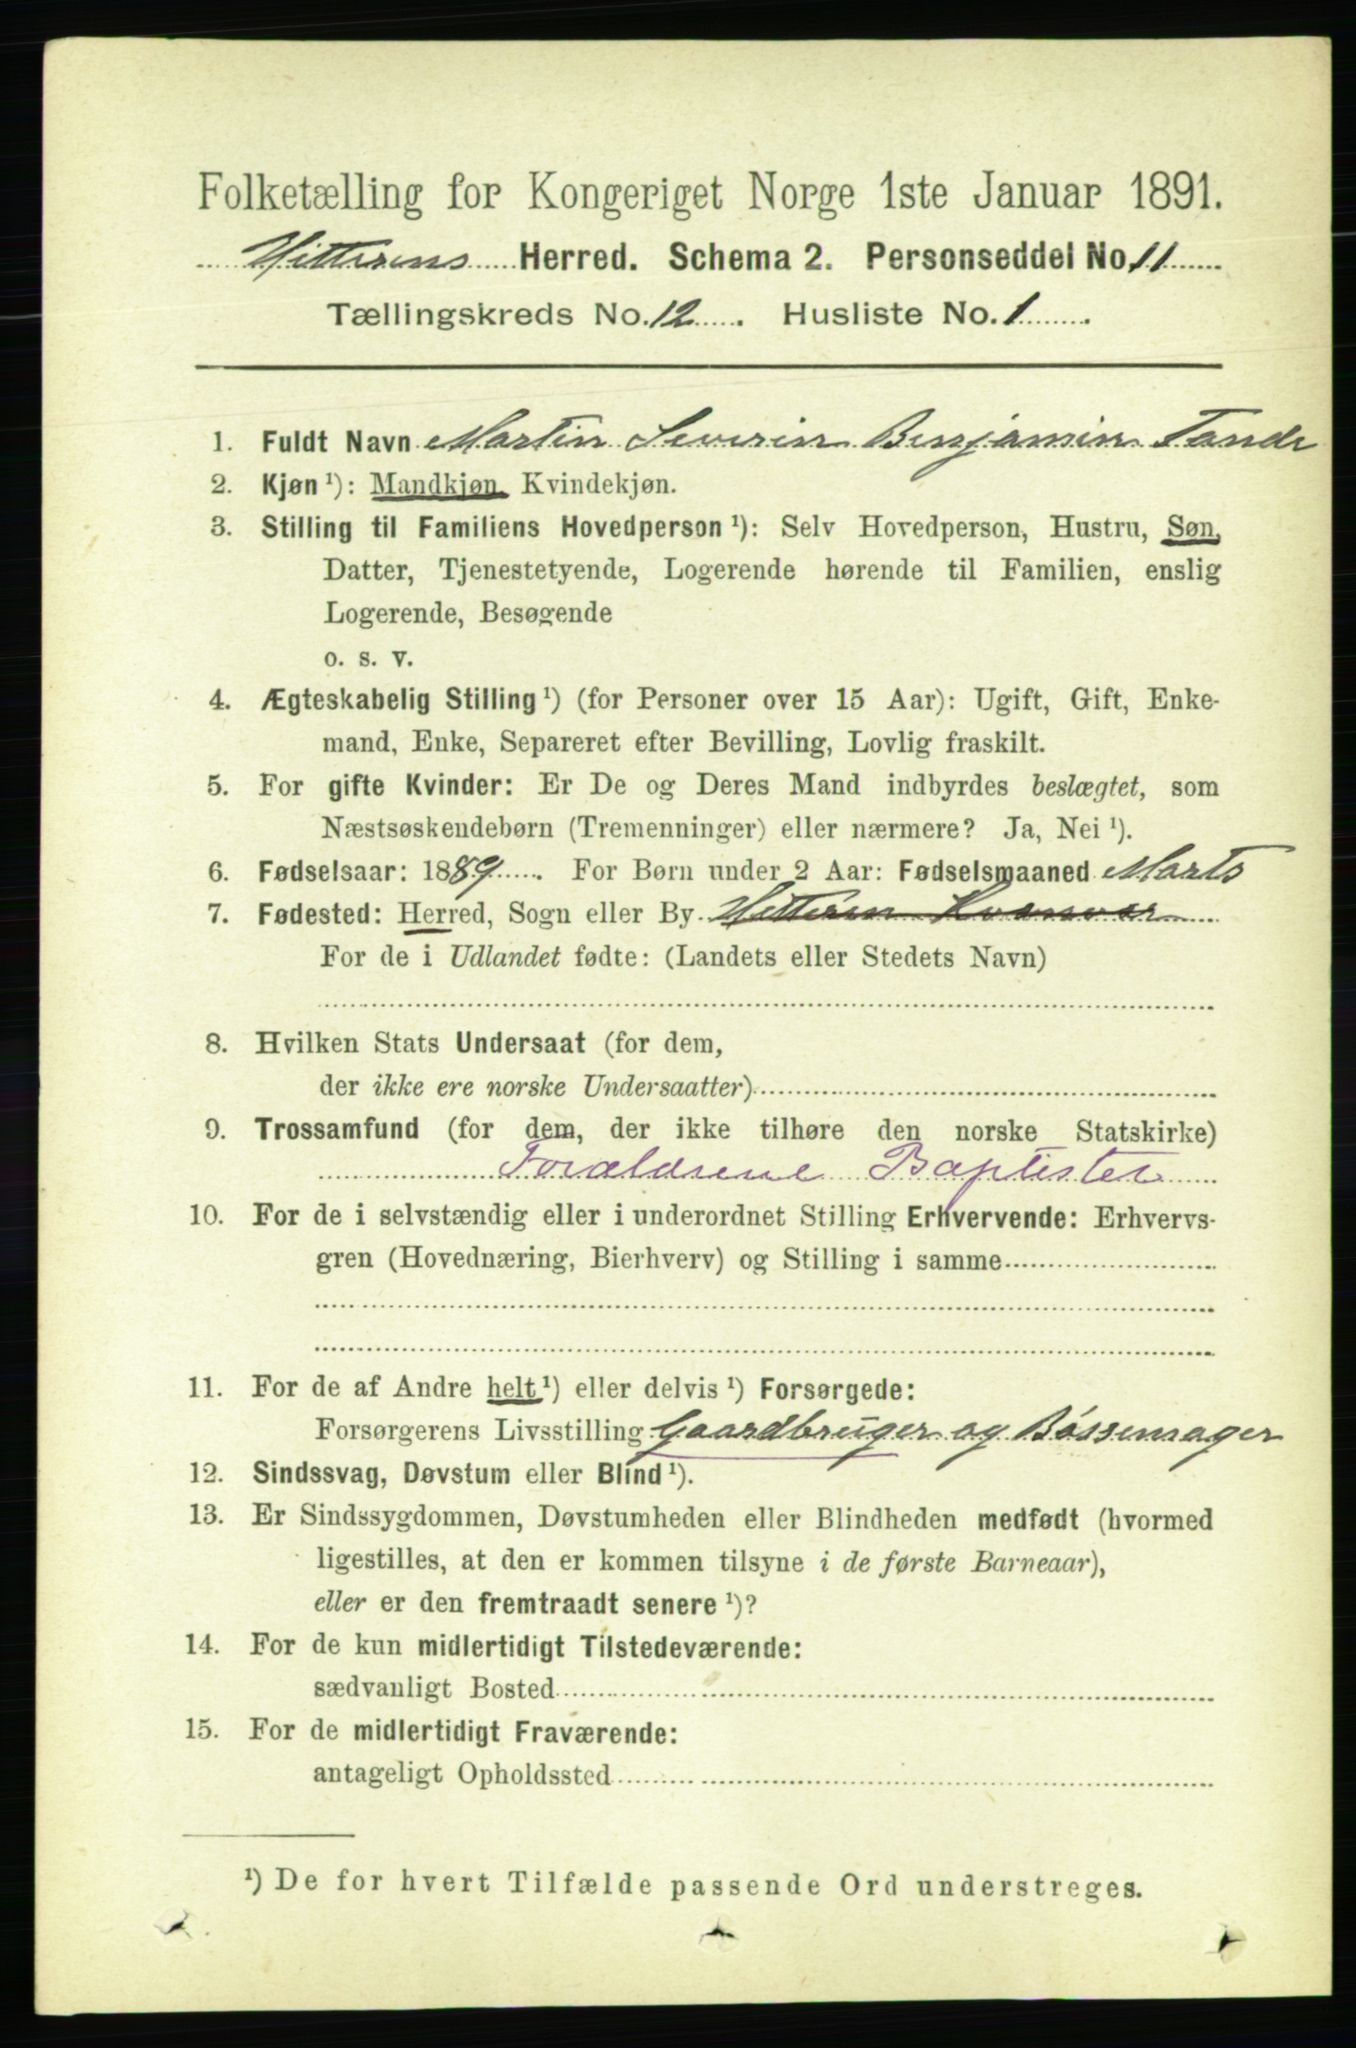 Folketælling for Kongeriget Norge 1ste Januar 1891.
Hitterens Herred. Schema 2. Personseddel No. 11
Tællingskreds No. 12. Husliste No. 1.
1. Fuldt Navn Martin Severin Benjamin Tande
2. Kjøn ¹): Mandkjøn, Kvindekjøn.
3. Stilling til Familiens Hovedperson ¹): Selv Hovedperson, Hustru, Søn,
Datter, Tjenestetyende, Logerende hørende til Familien, enslig
Logerende, Besøgende
o. s. v.
4. Ægteskabelig Stilling ¹) (for Personer over 15 Aar): Ugift, Gift, Enke-
mand, Enke, Separeret efter Bevilling, Lovlig fraskilt.
5. For gifte Kvinder: Er De og Deres Mand indbyrdes beslægtet, som
Næstsøskendebørn (Tremenninger) eller nærmere? Ja, Nei ¹).
6. Fødselsaar: 1889. For Børn under 2 Aar: Fødselsmaaned Marts
7. Fødested: Herred, Sogn eller By. Hitteren Kvenvær
For de i Udlandet fødte: (Landets eller Stedets Navn)
8. Hvilken Stats Undersaat (for dem,
der ikke ere norske Undersaatter)
9. Trossamfund (for dem, der ikke tilhøre den norske Statskirke)
Forældrene Baptister
10. For de i selvstændig eller i underordnet Stilling Erhvervende: Erhvervs-
gren (Hovednæring, Bierhverv) og Stilling i samme
11. For de af Andre helt ¹) eller delvis ¹) Forsørgede:
Forsørgerens Livsstilling Gaardbruger og Bøssemager
12. Sindssvag, Døvstum eller Blind ¹).
13. Er Sindssygdommen, Døvstumheden eller Blindheden medfødt (hvormed
ligestilles, at den er kommen tilsyne i de første Barneaar),
eller er den fremtraadt senere ¹)?
14. For de kun midlertidigt Tilstedeværende:
sædvanligt Bosted
15. For de midlertidigt Fraværende:
antageligt Opholdssted
¹) De for hvert Tilfælde passende Ord understreges.